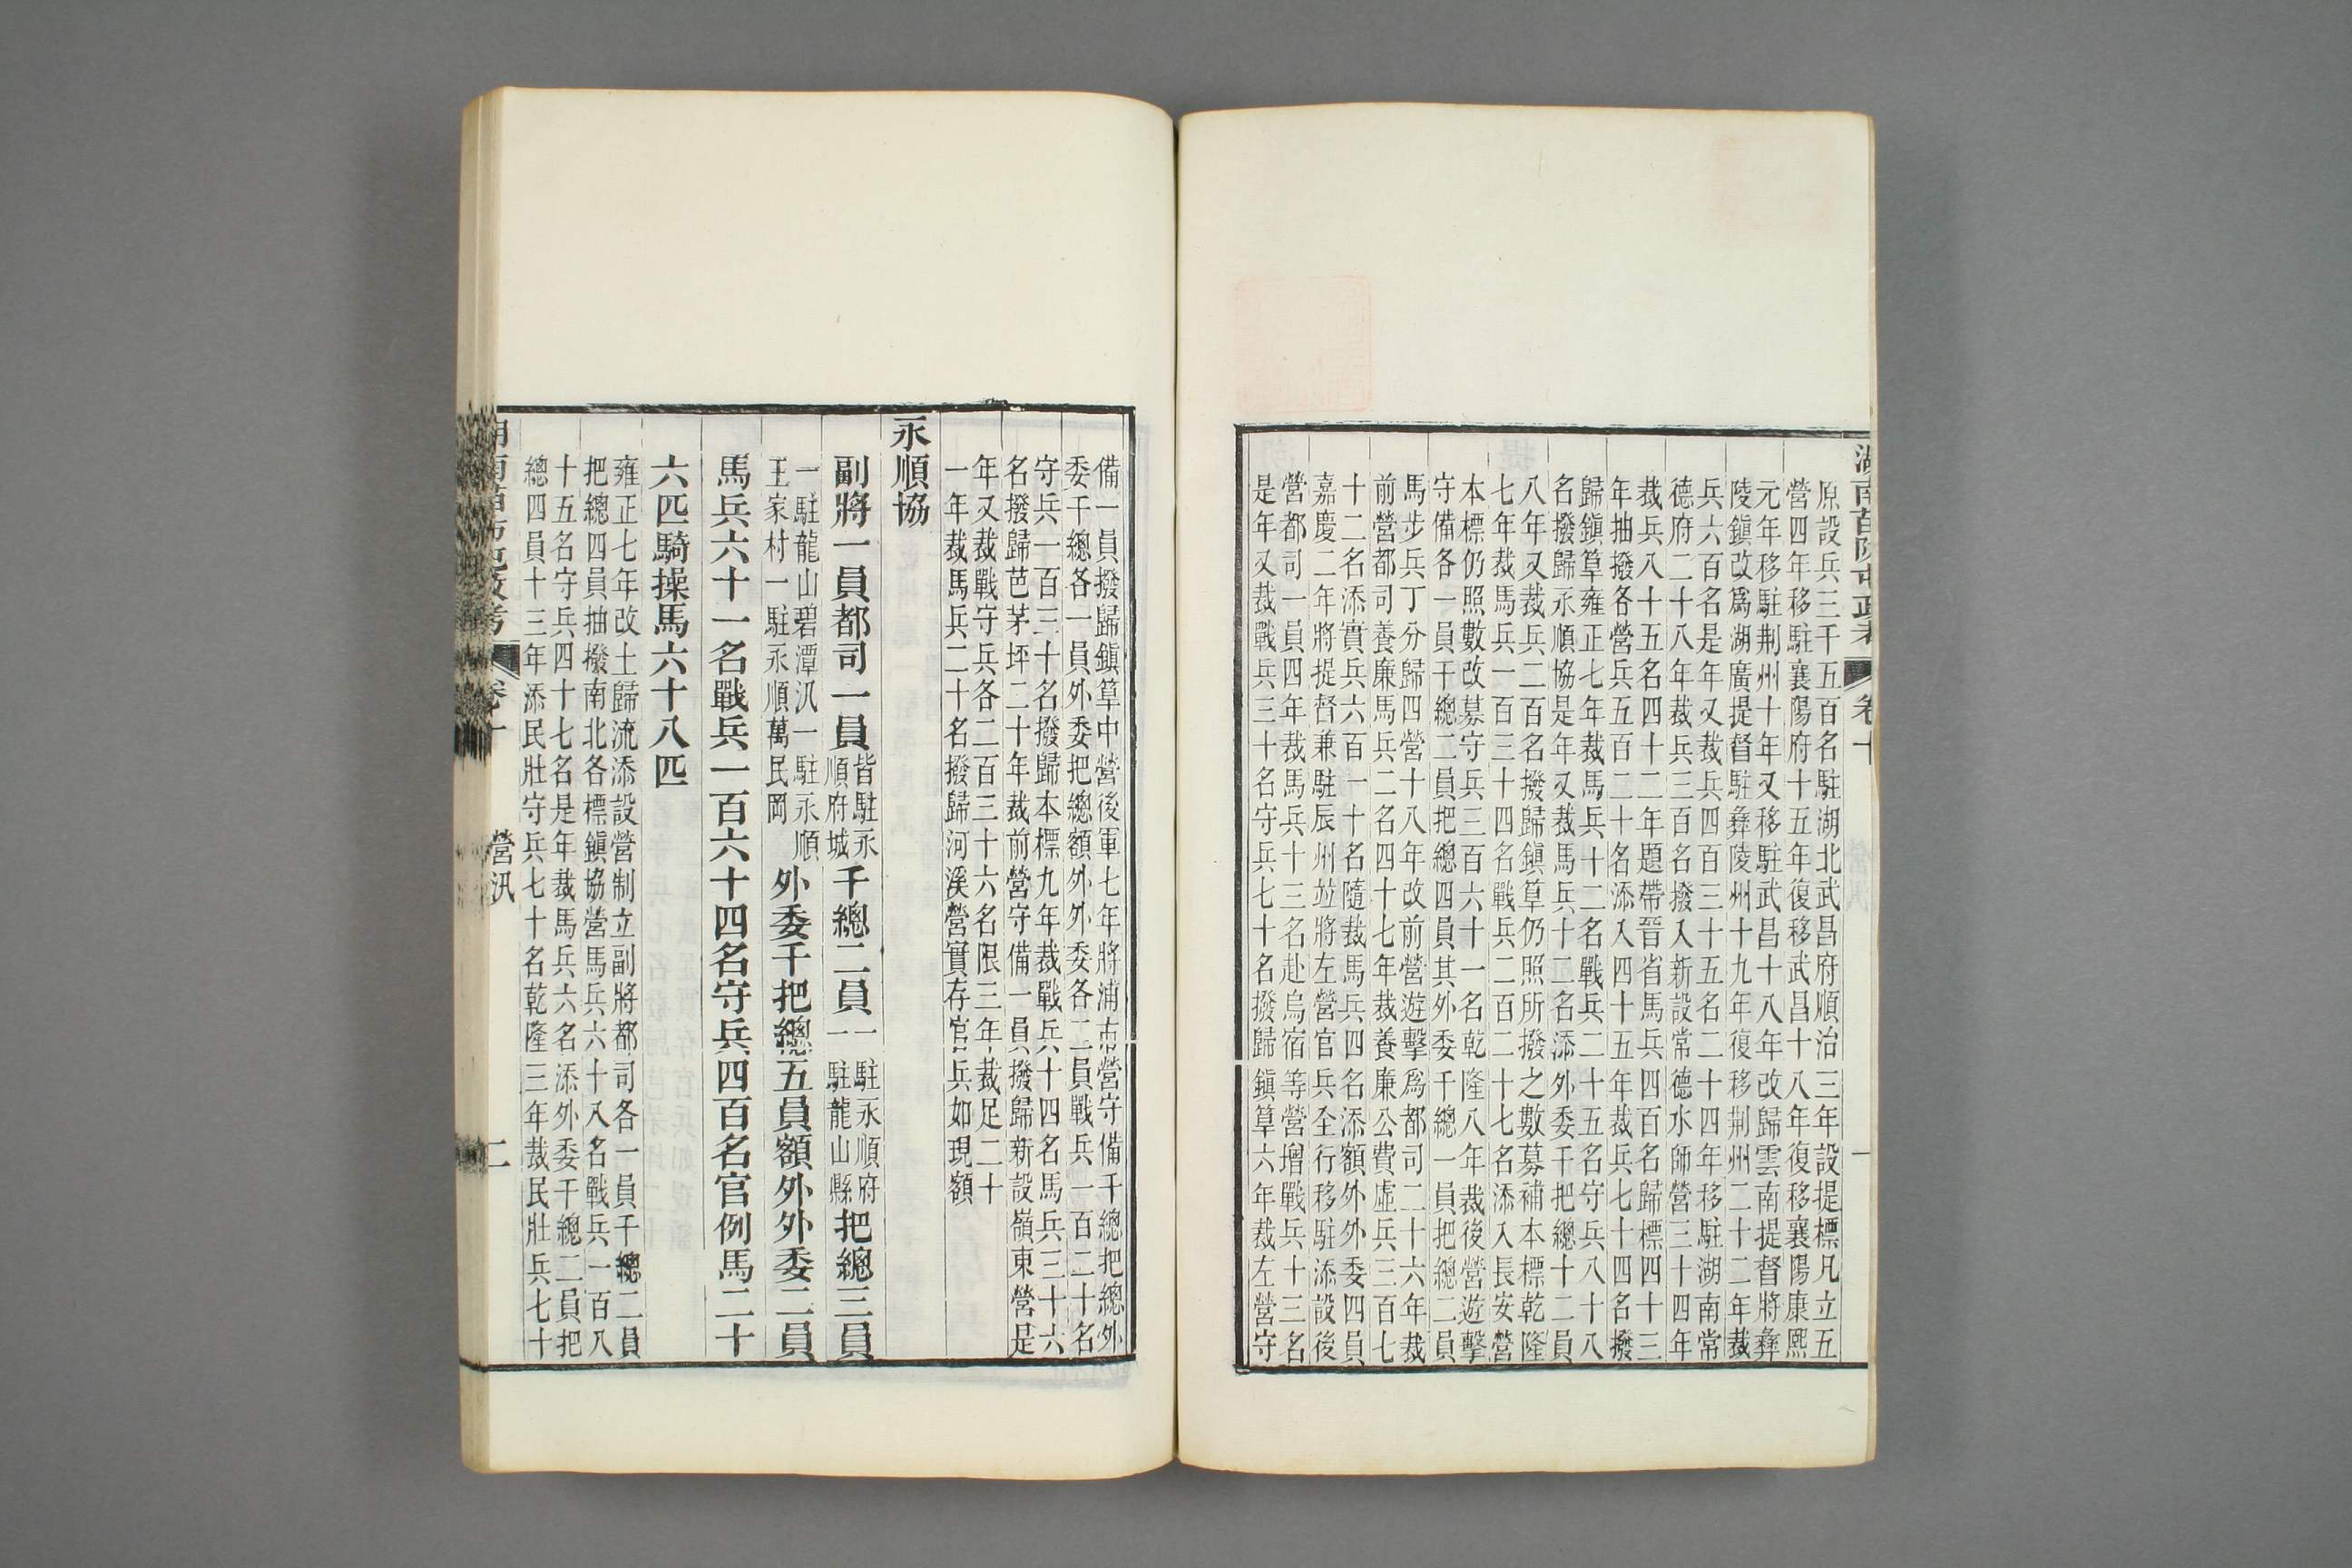 湖南苗防屯政考 卷十 一
原設兵三千五百名駐湖北武昌府順治三年設提標凡立五
營四年移駐襄陽府十五年復移武昌十八年復移襄陽康熙
元年移駐荆州十年又移駐武昌十八年改歸雲南提督將彝
陵鎭改爲湖廣提督駐彝陵州十九年復移荆州二十二年裁
兵六百名是年又裁兵四百三十五名二十四年移駐湖南常
德府二十八年裁兵三百名撥入新設常德水師營三十四年
裁兵八十五名四十二年題帶晉省馬兵四百名歸標四十三
年抽撥各營兵五百二十名添入四十五年裁兵七十四名撥
歸鎭筸雍正七年裁馬兵十二名戰兵二十五名守兵八十八
名撥歸永順協是年又裁馬兵十二名添外委千把總十二員
八年又裁兵二百名撥歸鎭筸仍照所撥之數募補本標乾隆
七年裁馬兵一百三十四名戰兵二百二十七名添入長安營
本標仍照數改募守兵三百六十一名乾隆八年裁後營遊擊
守備各一員千總二員把總四員其外委千總一員把總二員
馬步兵丁分歸四營十八年改前營遊擊爲都司二十六年裁
前營都司養廉馬兵二名四十七年裁養廉公費虛兵三百七
十二名添實兵六百一十名隨裁馬兵四名添額外外委四員
嘉慶二年將提督兼駐辰州竝將左營官兵全行移駐添設後
營都司一員四年裁馬兵十三名赴烏宿等營增戰兵十三名
是年又裁戰兵三十名守兵七十名撥歸鎭筸六年裁左營守
備一員撥歸鎭筸中營後軍七年將浦市營守備千總把總外
委千總各一員外委把總額外外委各二員戰兵一百二十名
守兵一百三十名撥歸本標九年裁戰兵十四名馬兵三十六
名撥歸芭茅坪二十年裁前營守備一員撥歸新設嶺東營是
年又裁戰守兵各二百三十六名限三年裁足二十
一年裁馬兵二十名撥歸河溪營實存官兵如現額
永順協
副將一員都司一員皆駐永順府城千總二員一駐永順府一駐龍山縣把總三員
一駐龍山碧潭汛一駐永順王家村一駐永順萬民岡外委千把總五員額外外委二員
馬兵六十一名戰兵一百六十四名守兵四百名官例馬二十
六匹騎操馬六十八匹
雍正七年改土歸流添設營制立副將都司各一員千總二員
把總四員抽撥南北各標鎭協營馬兵六十入名戰兵一百八
十五名守兵四十七名是年裁馬兵六名添外委千總二員把
總四員十三年添民壯守兵七十名乾隆三年裁民壯兵七十
卷十 營汛 二